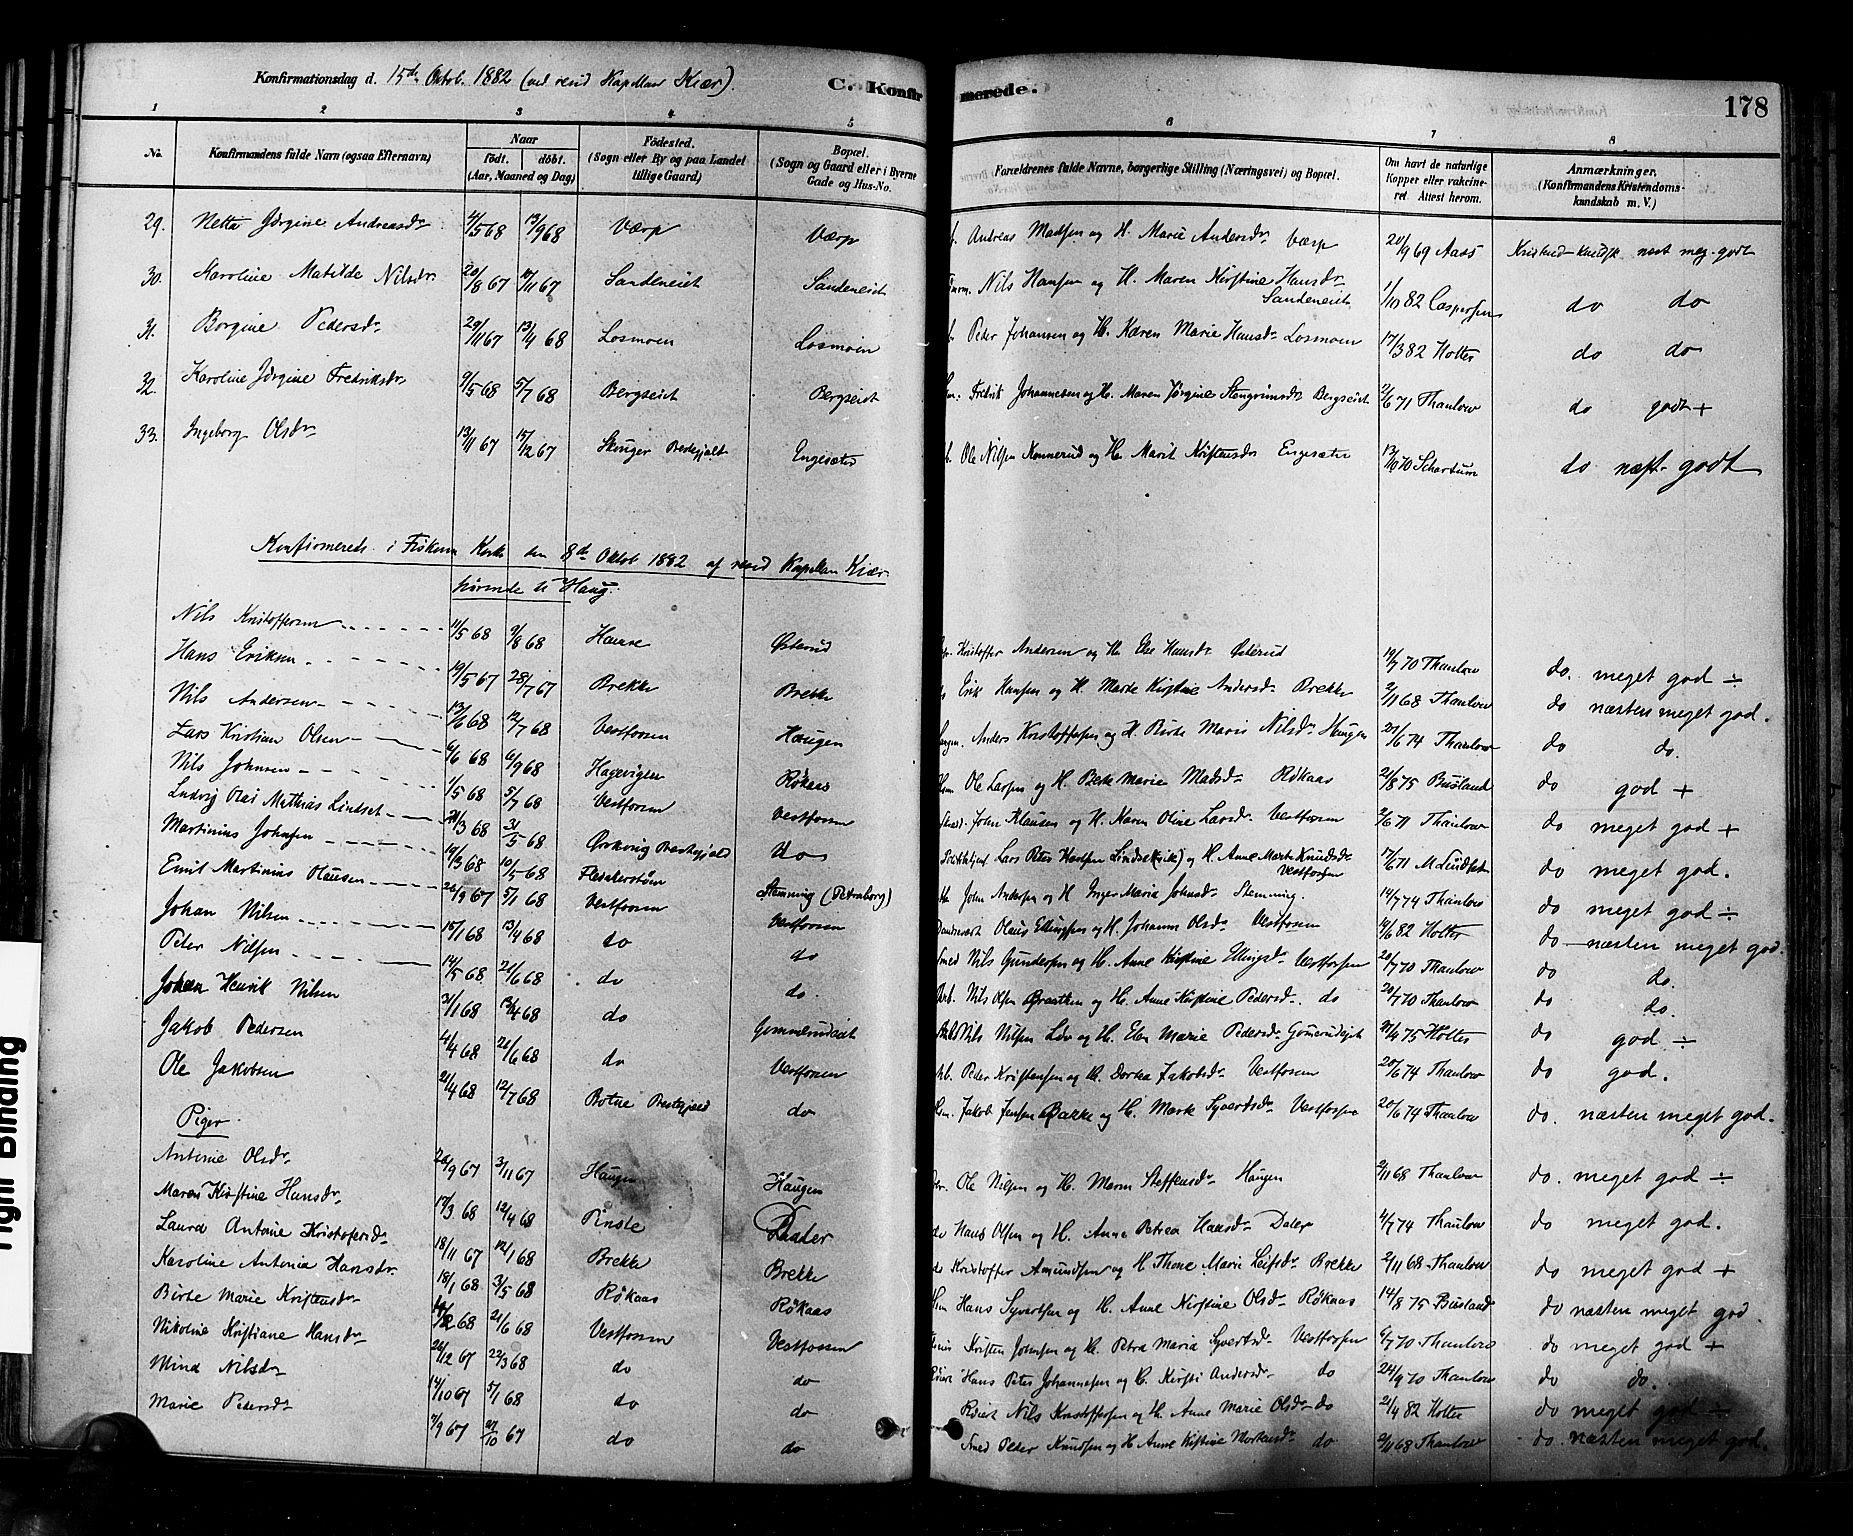 Konfirmationsdag d. 15de Oktob. 1882 (ved resid Kapellan Kiær). C. Konfirmerede. 178
1 2 3 4 5 6 7 8
No. Konfirmandens fulde Navn (ogsaa Efternavn) Naar født. døbt. (Aar, Maaned og Dag) Fødested. (Sogn eller By og paa Landet tillige Gaard) Bopæl. (Sogn og Gaard eller i Byerne Gade og Hus-No. Forældrenes fulde Navne, borgerlige Stilling (Næringsvei) og Bopæl. Om havt de naturlige Kopper eller vakcineret Attest herom. Anmærkninger. (Konfirmandens Kristendomskundskab m. V.)
29. Netta Jørgine Andreasdr 4/5 68 13/9 68 Værp Værp Andreas Madsen og H. Marie Andersdr Værp 20/9 69 Aass næst meg. godt
30. Karoline Matilde Nilsdr. 20/8 67 10/11 67 Sandeneiet Sandeneiet Nils Hansen og H. Maren Kirstine Hansdr Sandeneiet 1/10 82 Caspersen do do
31. Borgine Pedersdr 29/11 67 13/4 68 Losmoen Losmoen Peder Johansen og H. Karen Marie Hansdr Losmoen 17/3 82 Holter do do
32. Karoline Jørgine Fredriksdr 9/5 68 5/7 68 Bergseiet Bergseiet Fredrik Johannesen og H. Maren Jørgine Stengrimsdr Bergseiet 2/6 71 Thaulow do godt +
33. Ingeborg Olsdr 13/11 67 15/12 67 Skouger Prestegjeldt Engesæter Ole Nilsen Konnerud og H. Marit Kristensdr Engesæter 13/10 70 Schartum do næst godt
Konfirmerede i Fiskum Kirke den 8de Oktob 1882 af resid Kapellan Kiær
hørende til Haug.
Nils Kristoffersen 11/5 68 9/8 68 Haare Østerud Kristoffer Andersen og H. Else Hansdr Østerud 19/7 70 Thaulow do. meget god ÷
Hans Eriksen 19/5 67 28/7 67 Brekke Brekke Erik Hansen og H. Marte Kirstine Andersdr Brekke 2/11 68 Thaulow do næsten meget god.
Nils Andersen 13/6 68 12/7 68 Vestfossen Haugen Anders Kristoffersen og H. Birte Marie Nilsdr Haugen 21/6 74 Thaulow do do.
Lars Kristian Olsen 6/6 68 6/9 68 Hagevigen Røkaas Ole Larsen og H. Berte Marie Madsdr Røkaas 21/8 75 Busland do god +
Nils Johnsen 1/5 68 5/7 68 Vestfossen Vestfossen John Klausen og H. Karen Oline Larsdr Vestfossen 2/6 71 Thaulow do meget god +
Ludvig Olai Mathias Lindset 24/3 68 31/5 68 Ørskoug Prestegjeld do Lars Peter Karlsen Lindset(vik) og H. Anne Marte Knudsdr Vestfossen 17/6 71 M Lindset do meget god.
Martinius Johnsen 19/3 68 10/5 68 Flesakerstøm Stenning (Petersborg) John Andersen og H Inger Maria Johnsdr Stemming. 14/7 74 Thaulow do meget god ÷
Emil Martinius Olausen 26/9 67 5/1 68 Vestfossen Vestfossen Olaus Ellingsen og H. Johanne Olsdr Vestfossen 19/6 82 Holter do næsten meget god.
Johan Nilsen 15/1 68 13/4 68 do do Smed Nils Gundersen og H. Anne Kirstine Ellingsdr Vestfossen 20/7 70 Thaulow do do.
Peter Nilsen 14/5 68 21/6 68 do do. Arb. Nils Olsen Braathen og H. Anne Kirstine Pedersdr. do 20/7 70 Thaulow do do.
Johan Henrik Nilsen 31/1 68 13/4 68 do Gommerudeiet Nils Nilsen Lov og H. Elen Marie Pedersdr Gomerudeiet 21/4 75 Holter do god. ÷
Jakob Pedersen 4/4 68 21/6 68 do Vestfossen Peder Kristensen og H. Dortea Jakobsdr Vestfossen 20/6 74 Thaulow do god.
Ole Jakobsen 21/4 68 12/7 68 Botne Prestegjeld do Jakob Jensen Bakke og H. Marte Syversdr Vestfossen 20/6 74 Thaulow do. næsten meget god.
Piger.
Antonie Olsdr 26/9 67 3/11 67 Haugen Haugen Ole Nilsen og H. Maren Steffensdr Haugen 2/11 68 Thaulow do. meget god ÷
Maren Kirstine Hansdr 17/3 68 12/4 68 Pinsle Daaler Hans Olsen og H. Anne Petrea Hansdr Daler 4/7 74 Thaulow do meget god.
Laura Antonie Kristofersdr 18/11 67 12/1 68 Brekke Brekke Kristoffer Amundsen og H Thone Marie Leifsdr Brekke 2/11 68 Thaulow do meget god +
Karoline Antonia Hansdr. 18/1 68 3/5 68 Røkaas Røkaas Hans Syvertsen og H. Anne Kirstine Olsdr Røkaas 14/8 75 Busland do næsten meget god.
Birte Marie Kristensdr 68 21/6 68 Vestfossen Vestfossen Kristen Johnsen og H. Petra Maria Syvertsdr Vestfossen 6/7 70 Thaulow do meget god +
Nikoline Kristiane Hansdr 26/12 67 22/3 68 do do Hans Peter Johannesen og H. Kirsti Andersdr do 24/9 70 Thaulow do do.
Mina Nilsdr 14/10 67 5/1 68 do do Nils Kristoffersen og H. Anne Marie Olsdr do 21/4 82 Holter do meget god ÷
Marie Pedersdr 7/9 67 27/10 67 do do Smed Peder Knudsen og H Anne Kirstine Mortensdr do 2/11 68 Thaulow do. næsten meget god.
Tight Binding